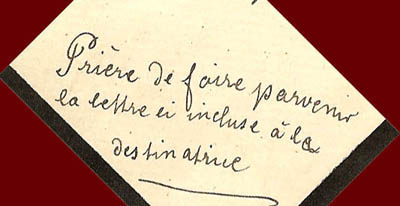 Prière de faire parvenir
la lettre ci incluse à la
destinatrice